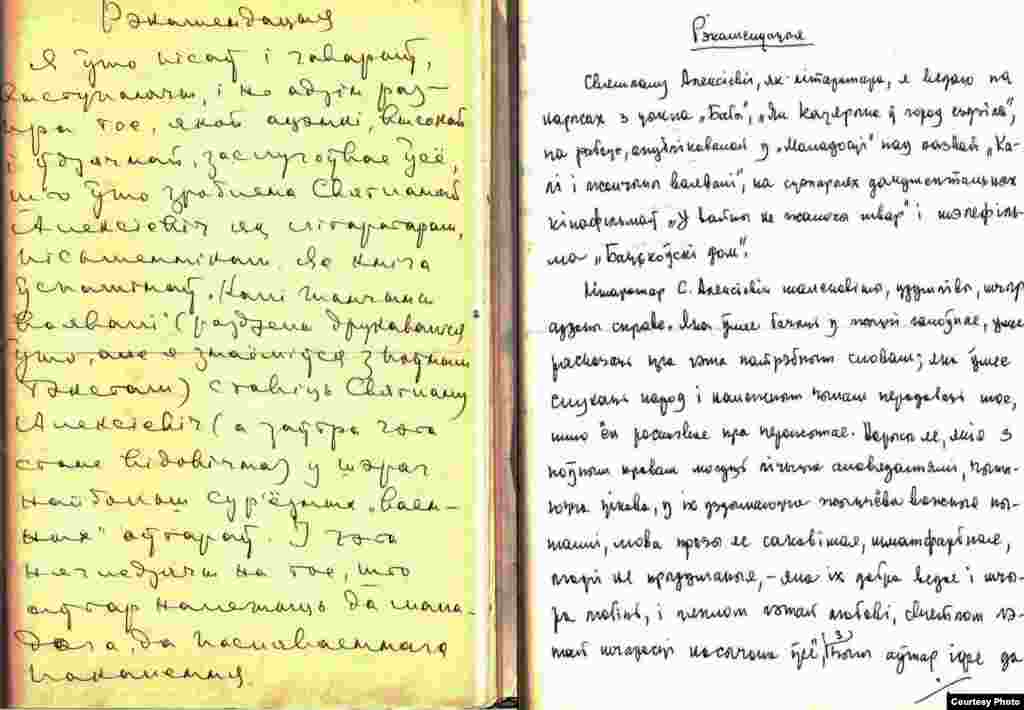 Рэкамендацыя
Я ўжо пісаў і гаварыў,
выступаючы, і не адзін раз
пра тое, якой ацэнкі, высокай
і ўдзячнай, заслугоўвае ўсё,
што ўжо зроблена Святланай
Алексіевіч як літаратарам,
пісьменнікам. Яе кніга
ўспамінаў
воявалі" (раздзелы друкаваліся
ўжо, але я знаёміўся з поўным
тэкстам) ставіць Святлану
Алексіевіч (а заўтра гэта
стане відовічна) у шэраг
найбольш сур'ёзных „ваен-
ных" аўтараў. І гэта
нягледзячы на тое, што
аўтар належыць да мала-
дога, да пасляваеннага
пакалення.
Рэкамендацыя
Святлану Алексіевіч, як літаратара, я ведаю па
нарысах з цыкла „Бабы", „Як Качэрыха ў горад ездзіла",
па рабоце, апублікаванай у „Маладосці" пад назвай „Ка-
лі і жанчыны ваявалі", па сцэнарыях дакументальных
кінафільмаў „У вайны не жаночы твар" і тэлефіль-
ма „Бацькоўскі дом".
Літаратар С. Алексіевіч таленавіты, удумлівы, шчыра
адданы справе. Яна ўмее бачыць у жыцці галоўнае, умее
расказаць пра гэта патрэбным словам; яна ўмее
слухаць народ і належным чынам перадаваць тое,
што ён расказвае пра перажытае. Нарысы яе, якія з
поўным правам можна лічыць апавяданнямі, чыта-
юцца цікава, у іх уздымаюцца жыццёва важныя пы-
танні, мова прозы яе сакавітая, шматфарбная,
людзі не прыдуманыя, – яна іх добра ведае і шчы-
ра любіць, і цяплом гэтай любові, святлом гэ-
тай шчырасці насычана ўсё, з чым аўтар ідзе да
Courtesy Photo